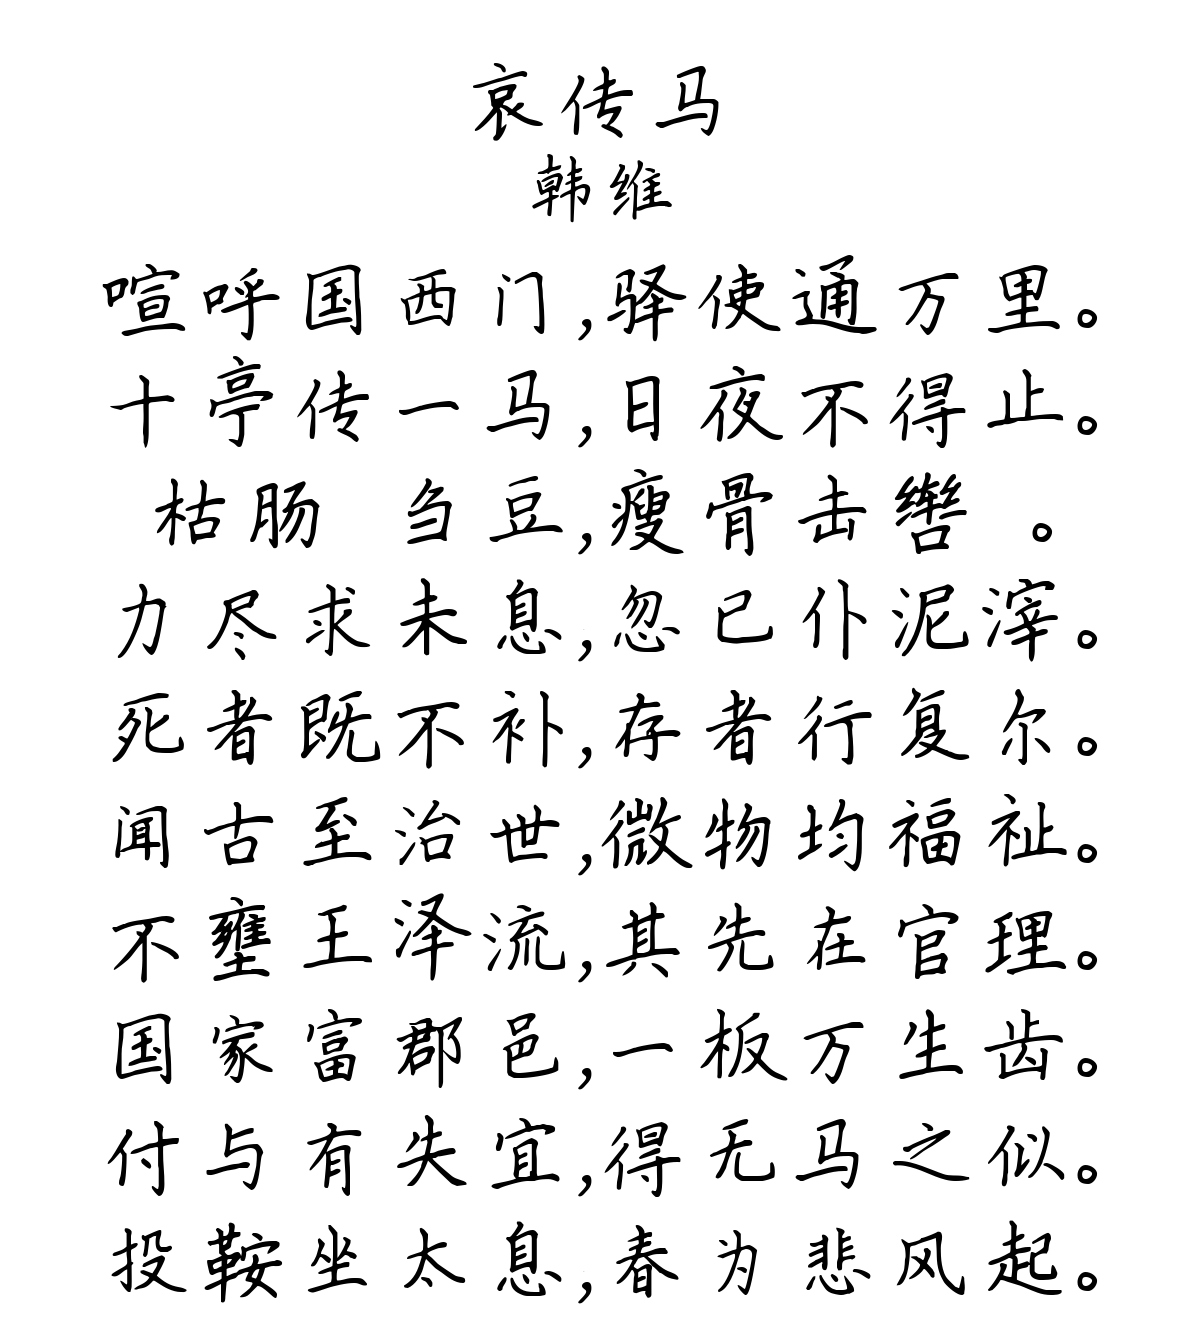 哀传马
韩维
喧呼国西门,驿使通万里。
十亭传一马,日夜不得止。
枯肠 刍豆,瘦骨击辔 。
力尽求未息,忽已仆泥滓。
死者既不补,存者行复尔。
闻古至治世,微物均福祉。
不壅王泽流,其先在官理。
国家富郡邑,一板万生齿。
付与有失宜,得无马之似。
投鞍坐太息,春为悲风起。